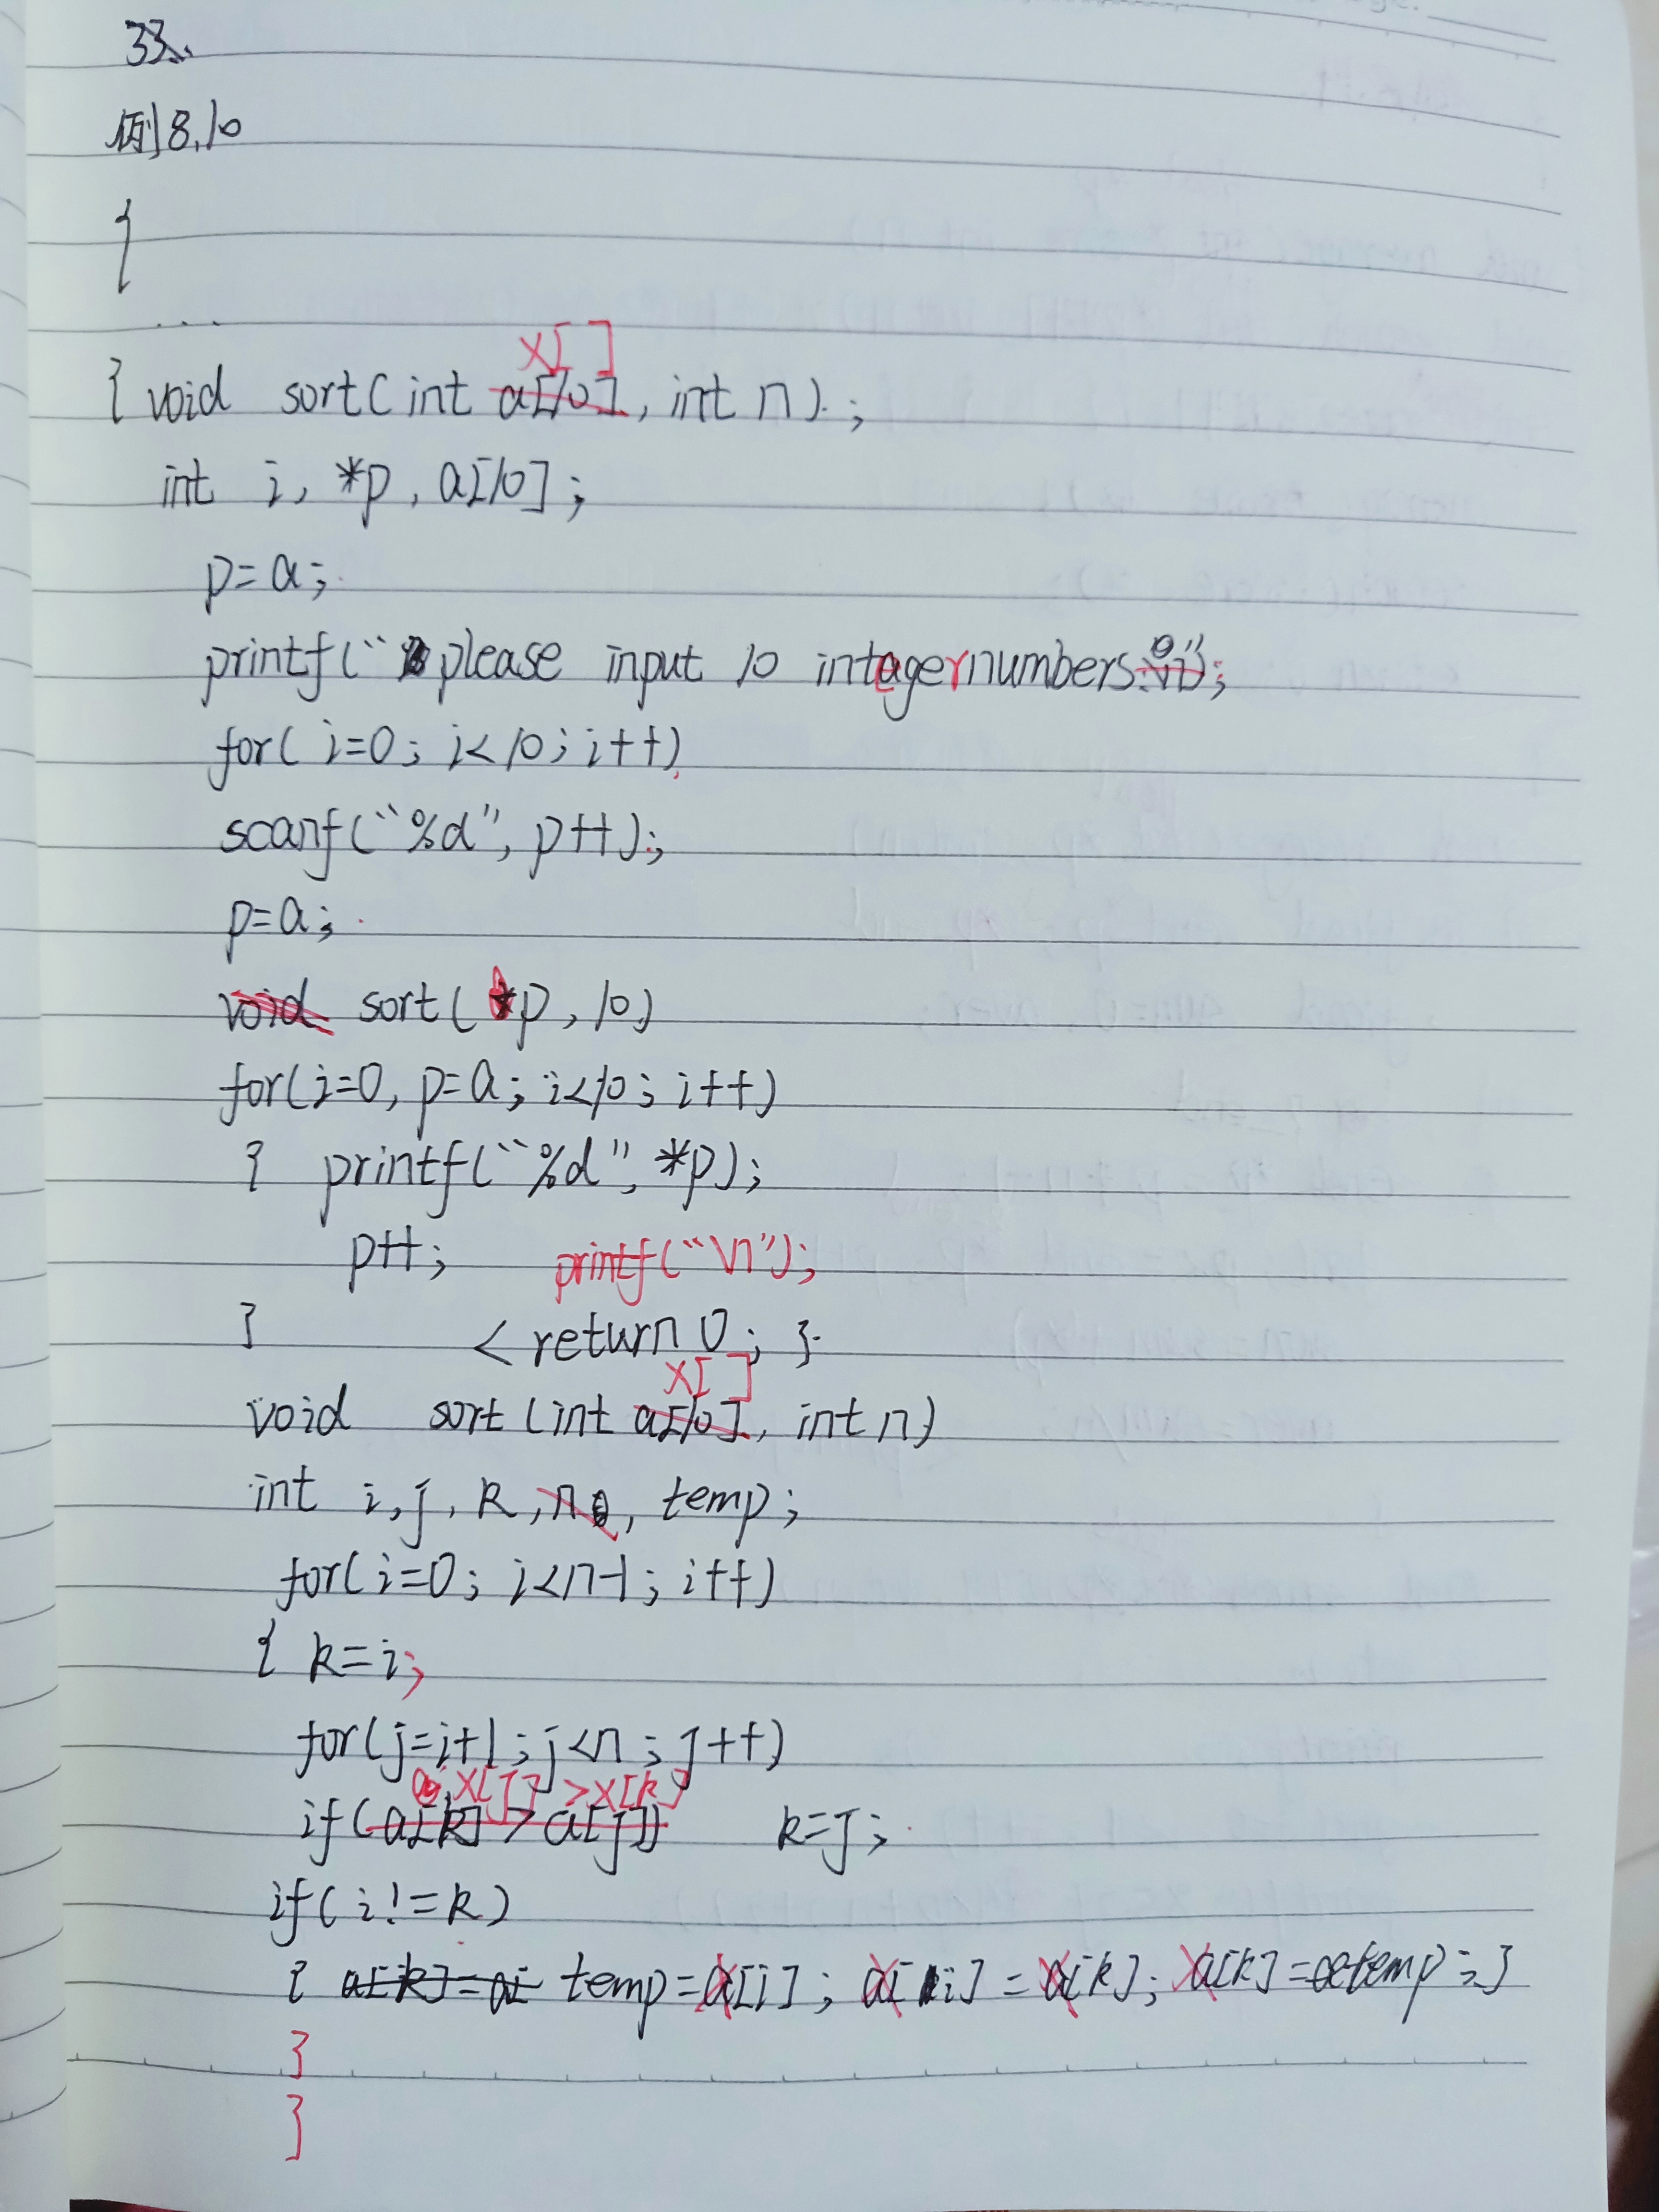 33.
例8.10
{
...
x[ ]
{ void sort(int a[10], int n);
int i, *p, a[10];
p=a;
printf("please input 10 integer numbers:");
for( i=0; i<10; i++)
scanf("%d", p++);
p=a;
void sort( *p, 10)
for(i=0, p=a; i<10; i++)
{ printf("%d", *p);
p++; printf("\n");
} < return 0; }
x[ ]
void sort (int a[10], int n)
int i, j, k, n, temp;
for(i=0; i<n-1; i++)
{ k=i;
for(j=i+1; j<n; j++)
x[j] >x[k]
if(a[k] > a[j]) k=j;
if(i!=k)
{ a[k]=a[ temp=x[i]; x[i] = x[k]; x[k]=temp; }
}
}